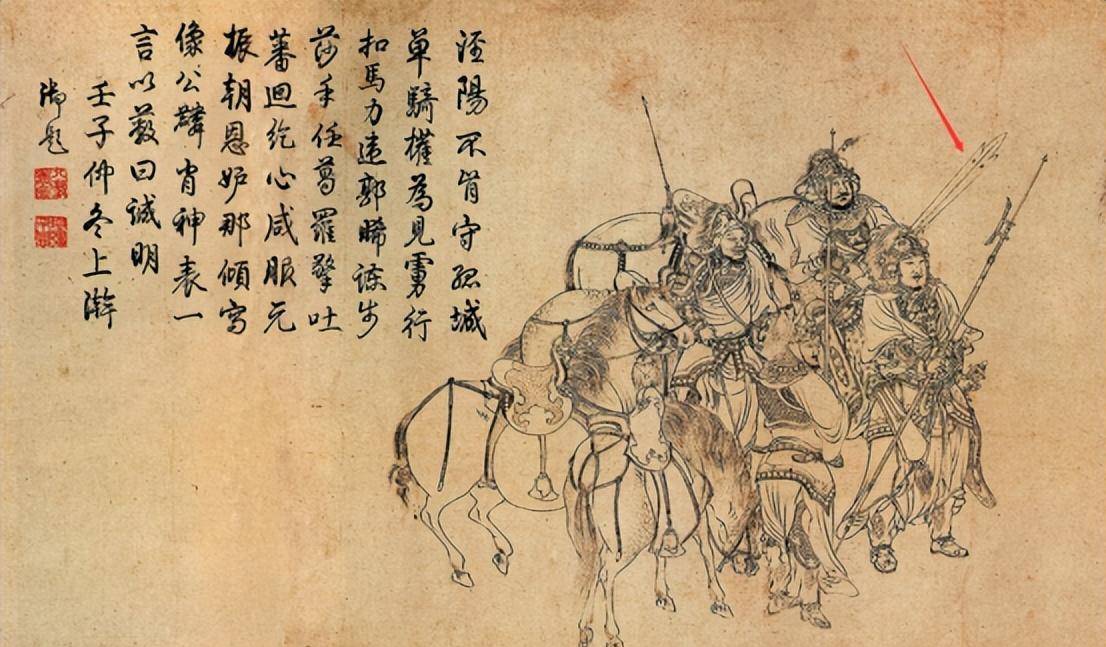 涇陽不肯守孤城
單騎權為見虜行
扣馬力違郭晞諫步
莎手任葛羅擎吐
蕃迴紇心咸服元
振朝恩妒那傾寫
像公麟肖神表一
言以蔽曰誠明
壬子仲冬上澣
御題